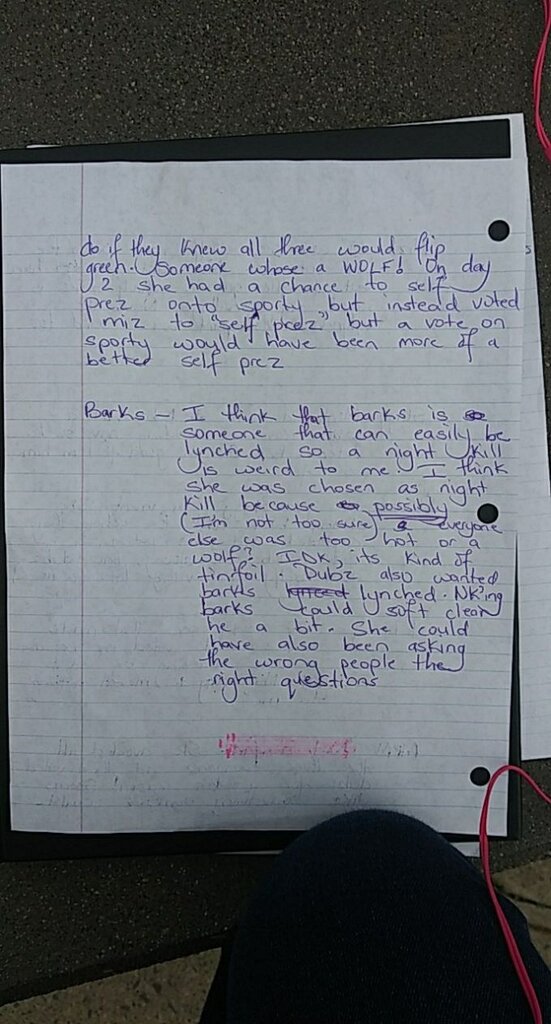 do if they knew all three would flip
green. Someone whose a WOLF! On day
2 she had a chance to self
prez onto sporty, but instead voted
miz to "self prez", but a vote on
sporty would have been more of a
better self prez
Barks - I think that barks is
someone that can easily be
lynched so a night kill
is weird to me. I think
she was chosen as night
kill because possibly
(I'm not too sure) everyone
else was too hot or a
wolf? IDK, its kind of
tinfoil. Dubz also wanted
barks lynched. NK'ing
barks could soft clear
he a bit. She could
have also been asking
the wrong people the
right questions